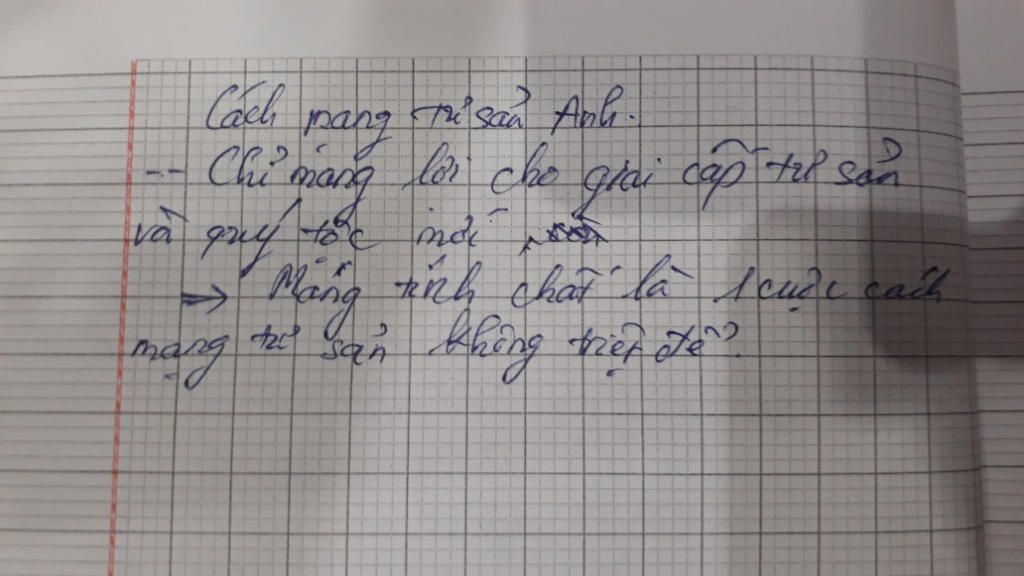 Cách mạng tư sản Anh.
-- Chỉ mang lời cho giai cấp tư sản
và quý tộc mới
=> Mang tính chất là 1 cuộc cách
mạng tư sản không triệt để.